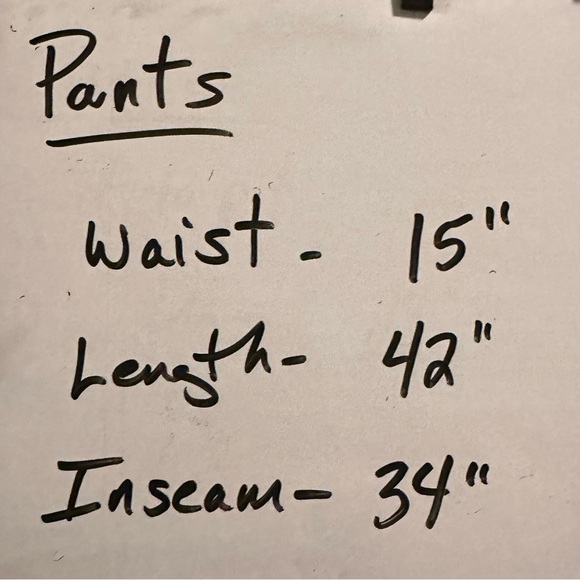 Pants
Waist - 15"
Length - 42"
Inseam - 34"